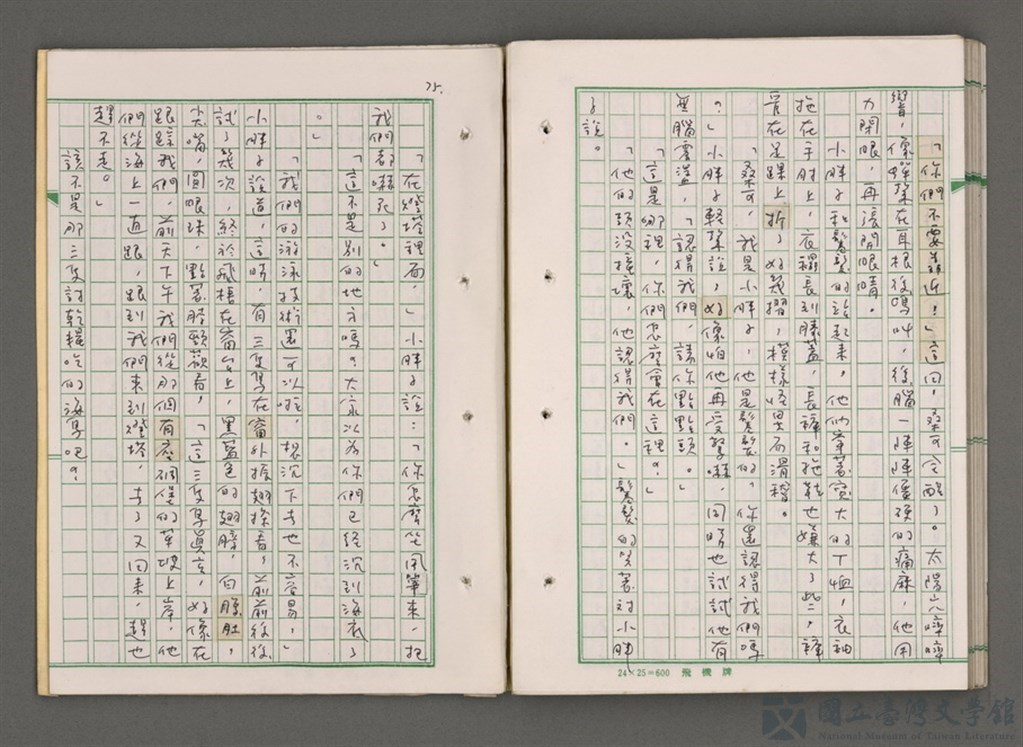 「你們不要靠近！」這回，桑可全醒了。太陽穴嗶嗶
響，像蟬棲在耳根後鳴叫，後腦一陣陣僵硬的痛麻，他用
力閉眼，再張開眼睛。
小胖子和鬈髮的站起來，他們穿著寬大的丁恤，衣袖
拖在手肘上，衣襬長到膝蓋，長褲和拖鞋也嫌大了些，褲
管在足踝上折了好幾摺，模樣怪異而滑稽。
「桑可，我是小胖子，他是鬈髮的，你還認得我們嗎
？」小胖子輕聲說，好像怕他再受驚嚇，同時也試試他有
無腦震盪，「認得我們，請你點點頭。」
「這是哪裡，你們怎麼會在這裡？」
「他的頭沒撞壞，他認得我們。」鬈髮的笑著對小胖
子說。
24×25=600 飛機牌
75.
「在燈塔裡面，」小胖子說：「你怎麼坐風箏來，把
我們都嚇死了。」
「這不是別的地方嗎？大家以為你們已經沉到海底了
。」
「我們的游泳技術還可以啦，想沉下去也不容易，」
小胖子說道，這時，有三隻鳥在窗外振翅探看，前前後後
試了幾次，終於飛棲在窗台上，黑藍色的翅膀，白腹肚，
尖嘴，圓眼珠，點著脖頸薇看，「這三隻鳥真玄，好像在
跟蹤我們，前天下午我們從那個有座碉堡的草坡上岸，他
們從海上一直跟，跟到我們來到燈塔，去了又回來，趕也
趕不走。」
該不是那三隻討乾糧吃的海鳥吧？
國立臺灣文學館
National Museum of Taiwan Literature